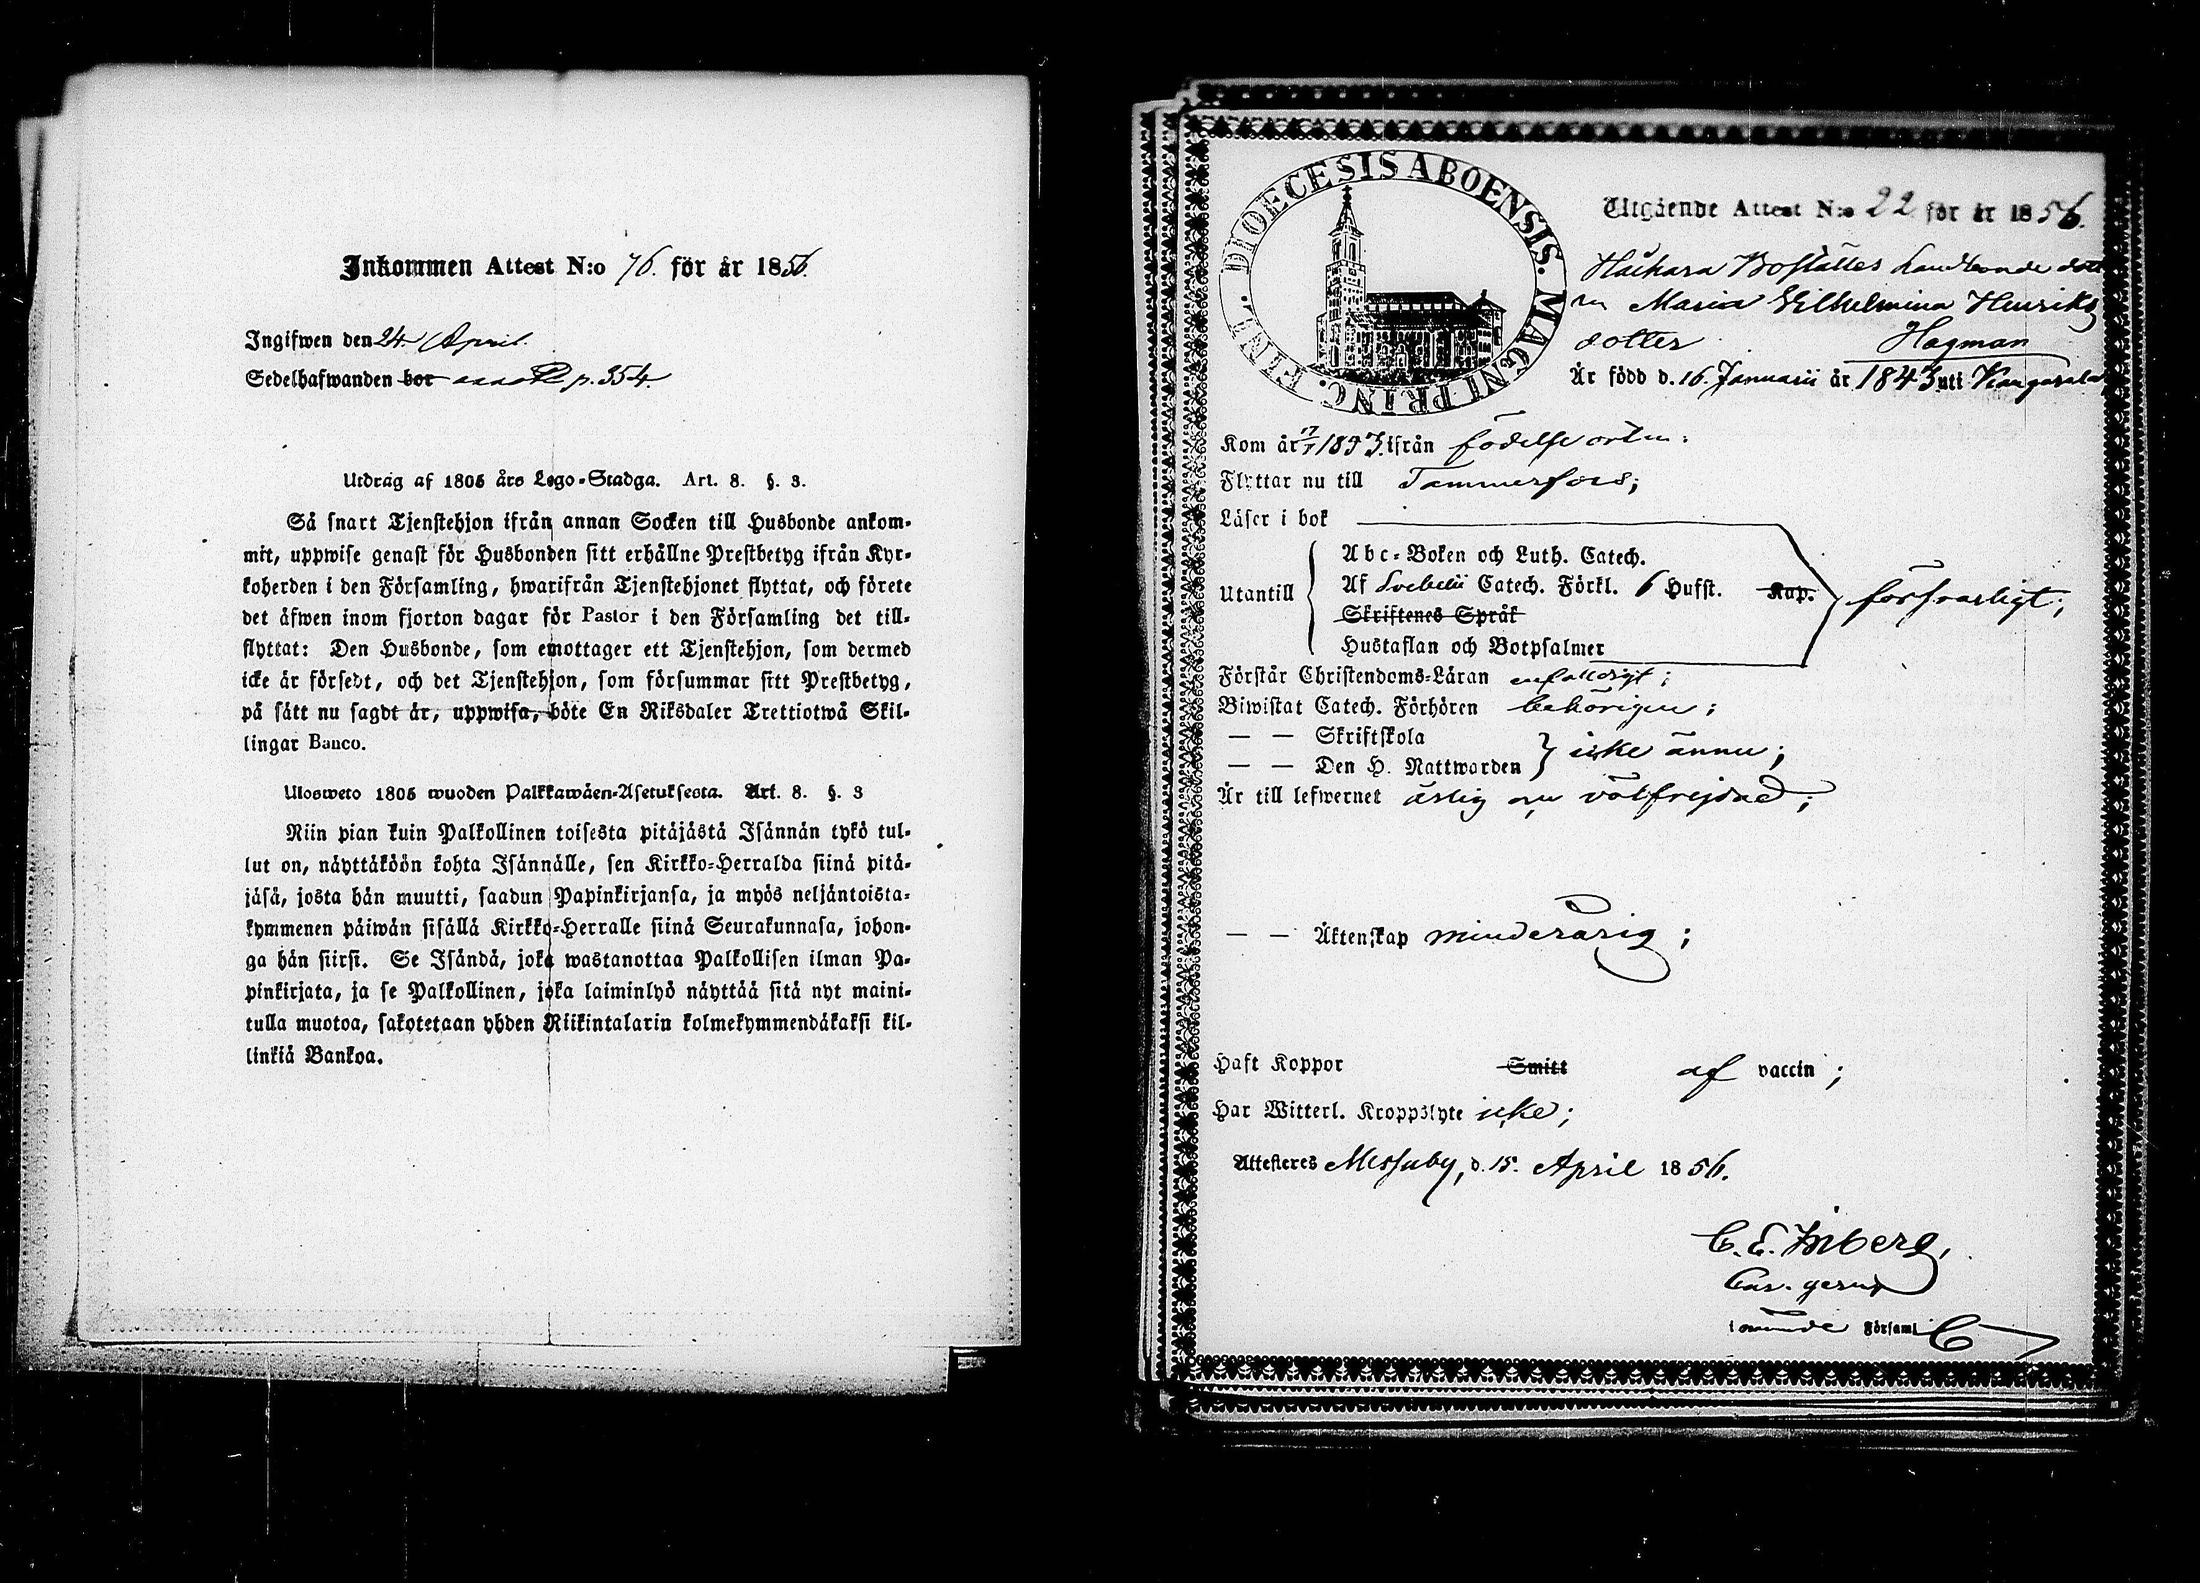 Inkommen Attest N:o 76. för år 1856.
Ingifwen den 24. April.
Sedelhafwanden bor p. 354.
Utdrag af 1805 års Lego-Stadga. Art. 8. §. 3.
Så snart Tjenstehjon ifrån annan Socken till Husbonde ankom-
mit, uppwise genast för Husbonden sitt erhållne Prestbetyg ifrån Kyr-
koherden i den Församling, hwarifrån Tjenstehjonet flyttat, och förete
det äfwen inom fjorton dagar för Pastor i den Församling det till-
flyttat: Den Husbonde, som emottager ett Tjenstehjon, som dermed
icke är försedt, och det Tjenstehjon, som försummar sitt Prestbetyg,
på sätt nu sagdt är, uppwisa, böte En Riksdaler Trettiotwå Skil-
lingar Banco.
Ulosweto 1805 wuoden Palkkawäen-Asetuksesta. Art. 8. §. 3
Niin pian kuin Palkollinen toisesta pitäjästä Isännän tykö tul-
lut on, näyttäköön kohta Isännälle, sen Kirkko-Herralda siinä pitä-
jäsä, josta hän muutti, saadun Papinkirjansa, ja myös neljäntoista-
kymmenen päiwän sisällä Kirkko-Herralle siinä Seurakunnasa, johon-
ga hän siirsi. Se Isändä, joka wastanottaa Palkollisen ilman Pa-
pinkirjata, ja se Palkollinen, joka laiminlyö näyttää sitä nyt maini-
tulla muotoa, sakotetaan yhden Riikintalarin kolmekymmendäkaksi kil-
linkiä Bankoa.
DIOECESIS ABOENSIS. MAGNI PRINC. FINL.
Utgående Attest N:o 22 för år 1856.
Haihara Boställes Landbonde dott
ren Maria Vilhelmina Henriks
dotter Hagman
Är född d. 16. Januarii år 1843 uti Kangasala
Kom år 1853. ifrån födelse orten:
Flyttar nu till Tammerfors;
Läser i bok
Abc-Boken och Luth. Catech.
Utantill Af Svebelii Catech. Förkl. 6 Hufst. Kap. försvarligt;
Skriftenes Språk
Hustaflan och Botpsalmer
Förstår Christendoms-Läran enfaldigt;
Biwistat Catech. Förhören behörigen;
— — Skriftskola
— — Den H. Nattwarden icke ännu;
Är till lefwernet ärlig och välfrejdad;
— — Äktenskap minderårig;
Haft Koppor Smitt af vaccin;
Har Witterl. Kroppslyte icke;
Attesteres Messuby, d. 15. April 1856.
C. E. Inberg,
i Församl